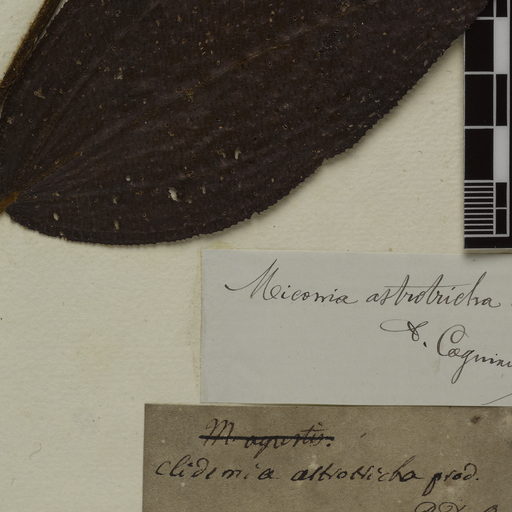 Miconia astrotricha
D. Cogniau
M. agrestis.
Clidemia astrotricha prod.